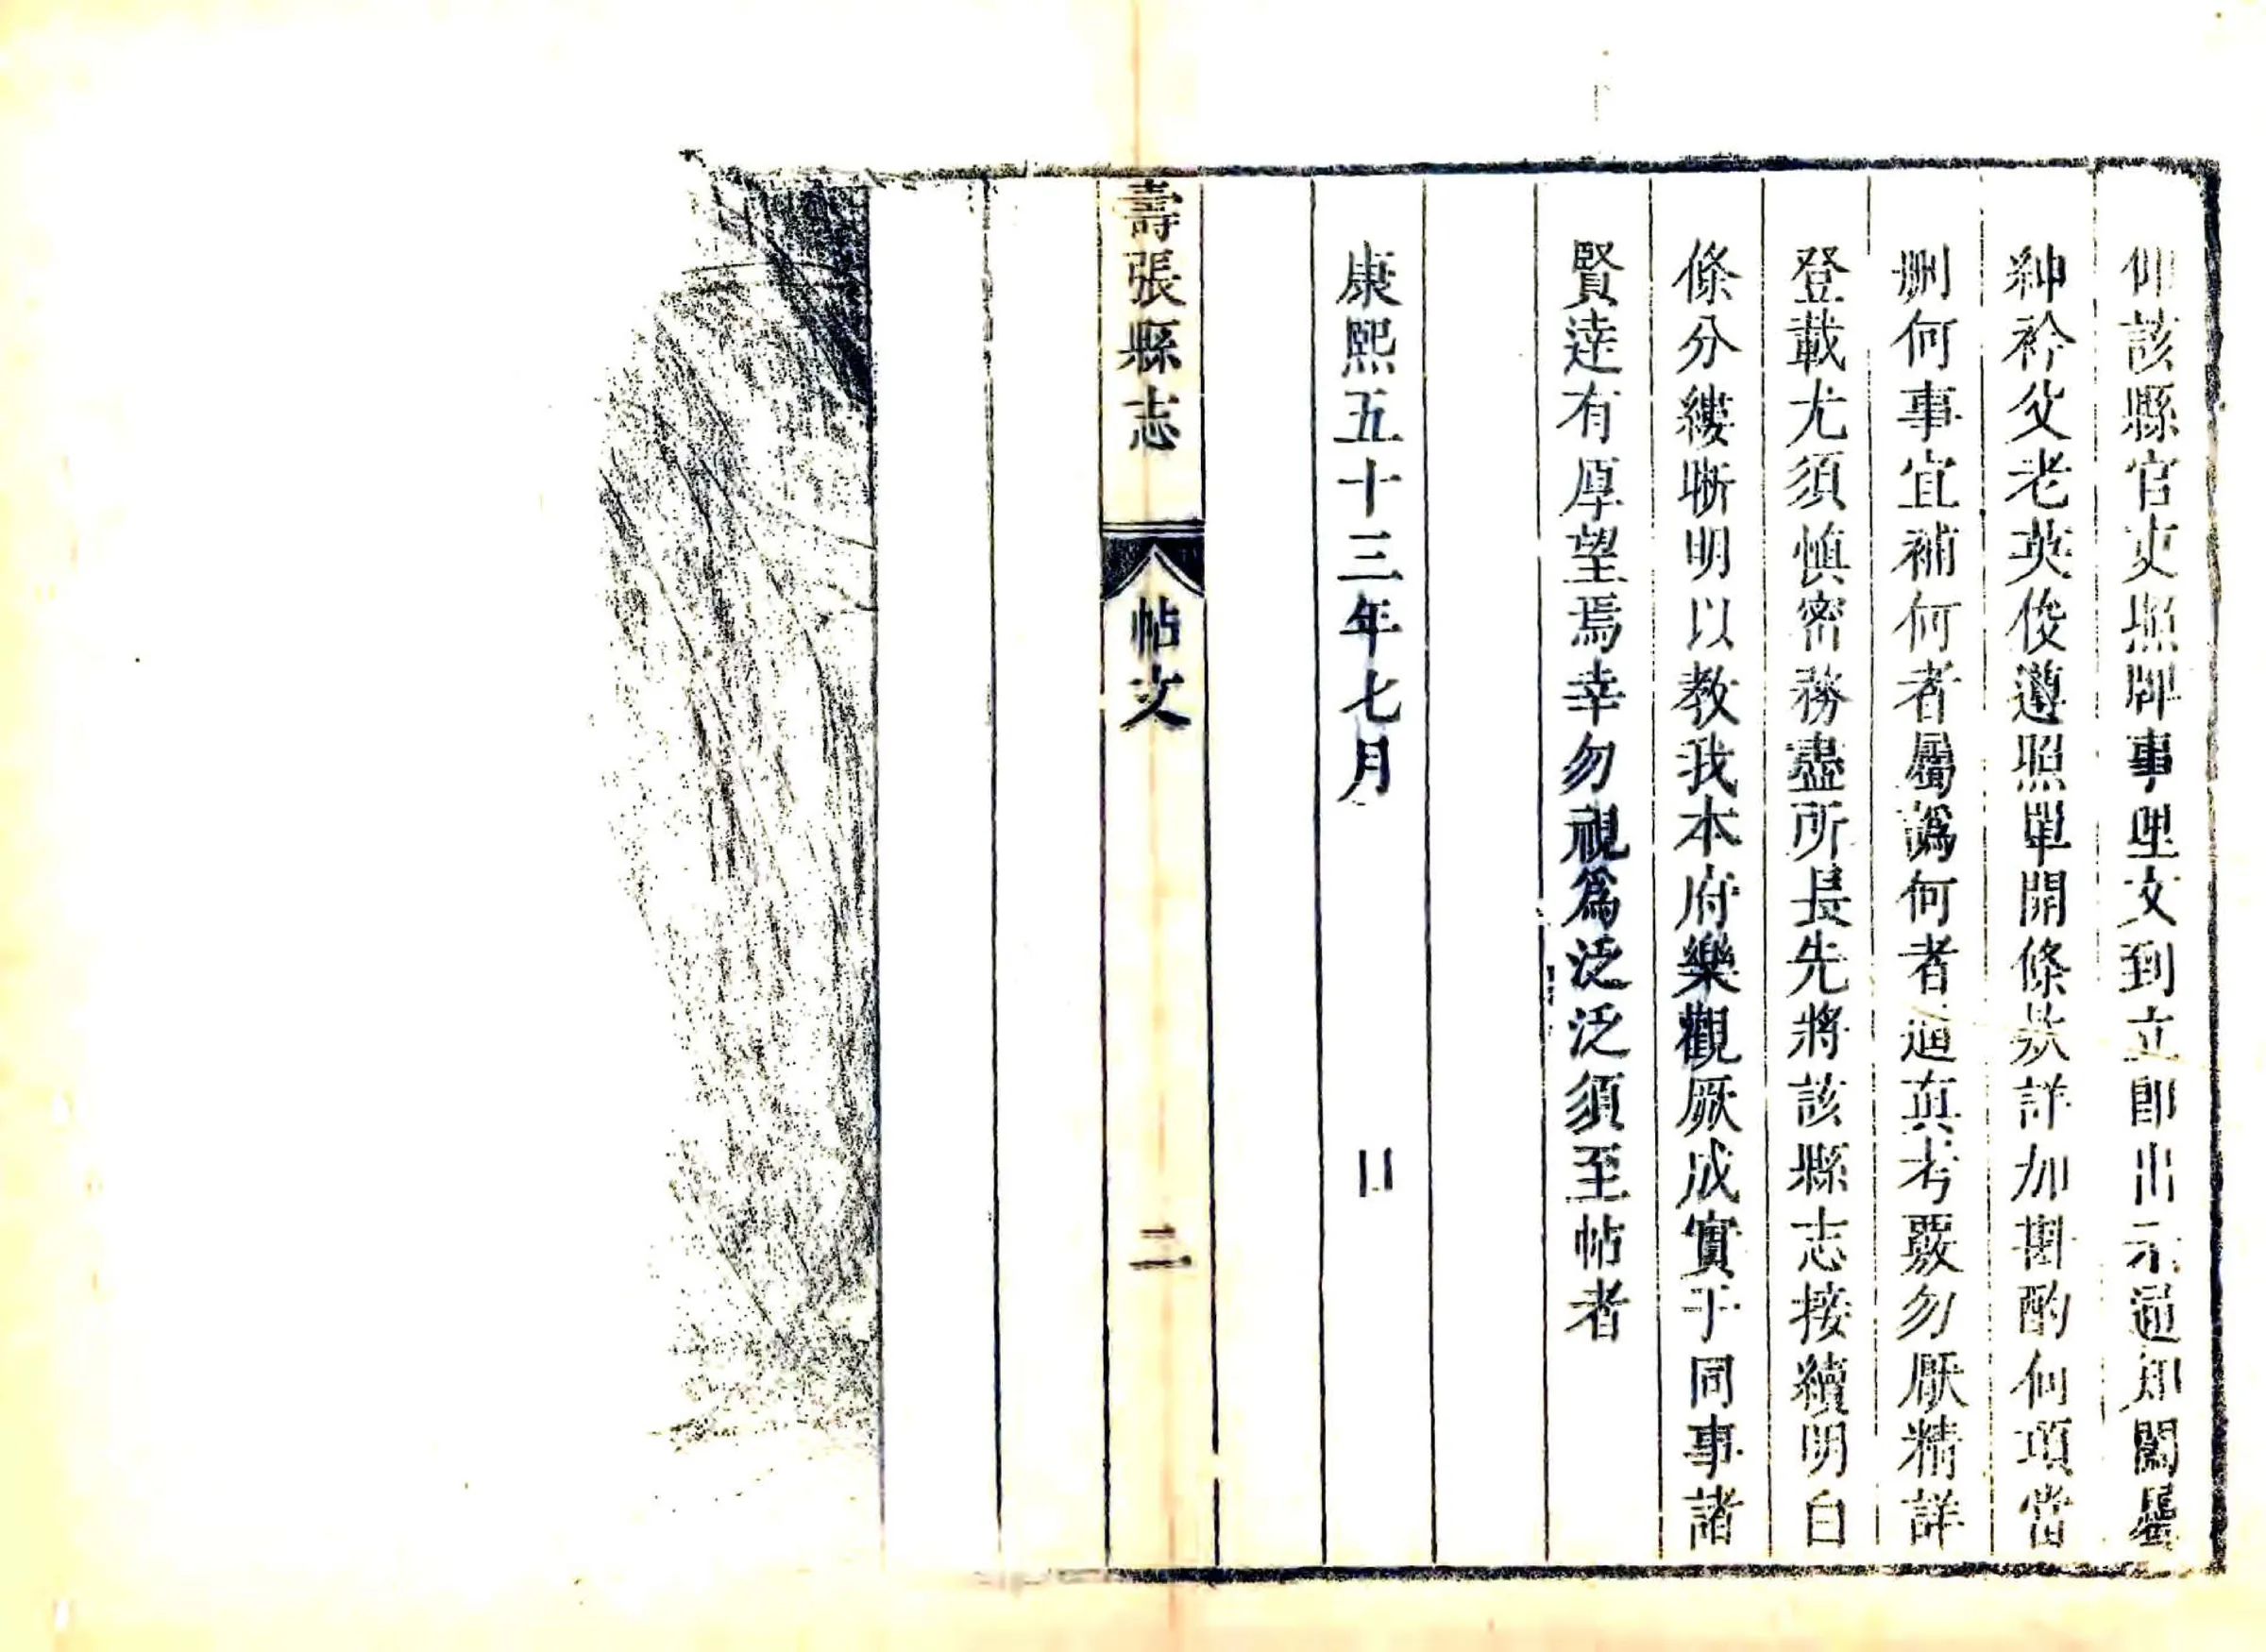 仰該縣官吏照牌事理文到立即出示通知闔屬
紳衿父老英俊遵照單開條欵詳加斟酌何項當
刪何事宜補何者屬譌何者逼真考覈勿厭精詳
登載尤須慎密務盡所長先將該縣志接續明白
條分縷晰明以教我本府樂觀厥成實于同事諸
賢達有厚望焉幸勿視爲泛泛須至帖者
康熙五十三年七月 日
壽張縣志 帖文 二